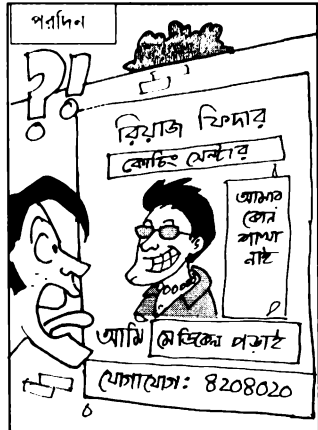 পরদিন
?!
রিয়াজ ফিদার
কোচিং সেন্টার
আমার
কোন
শাখা
নাই
আমি মেডিকেল পড়াই
যোগাযোগ: ৪২০৪০২০